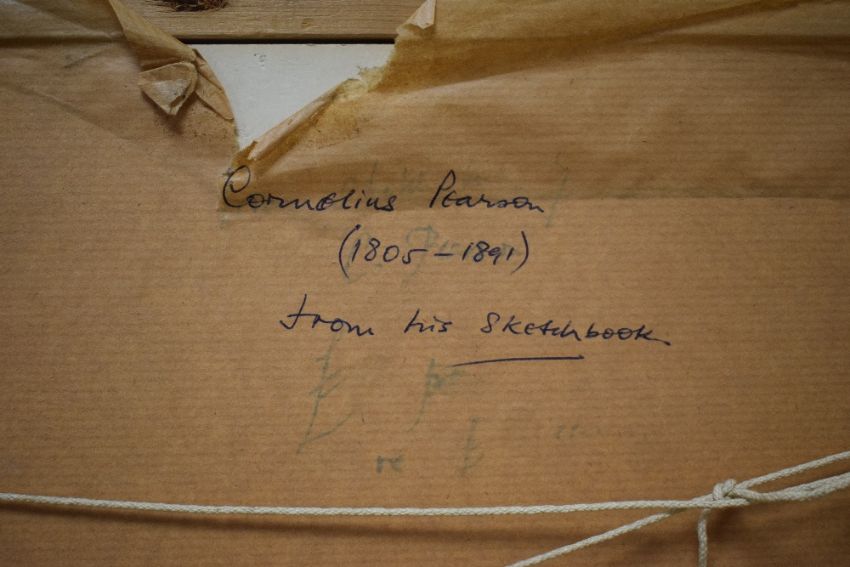 Cornelius Pearson
(1805-1891)
from his sketchbook
re